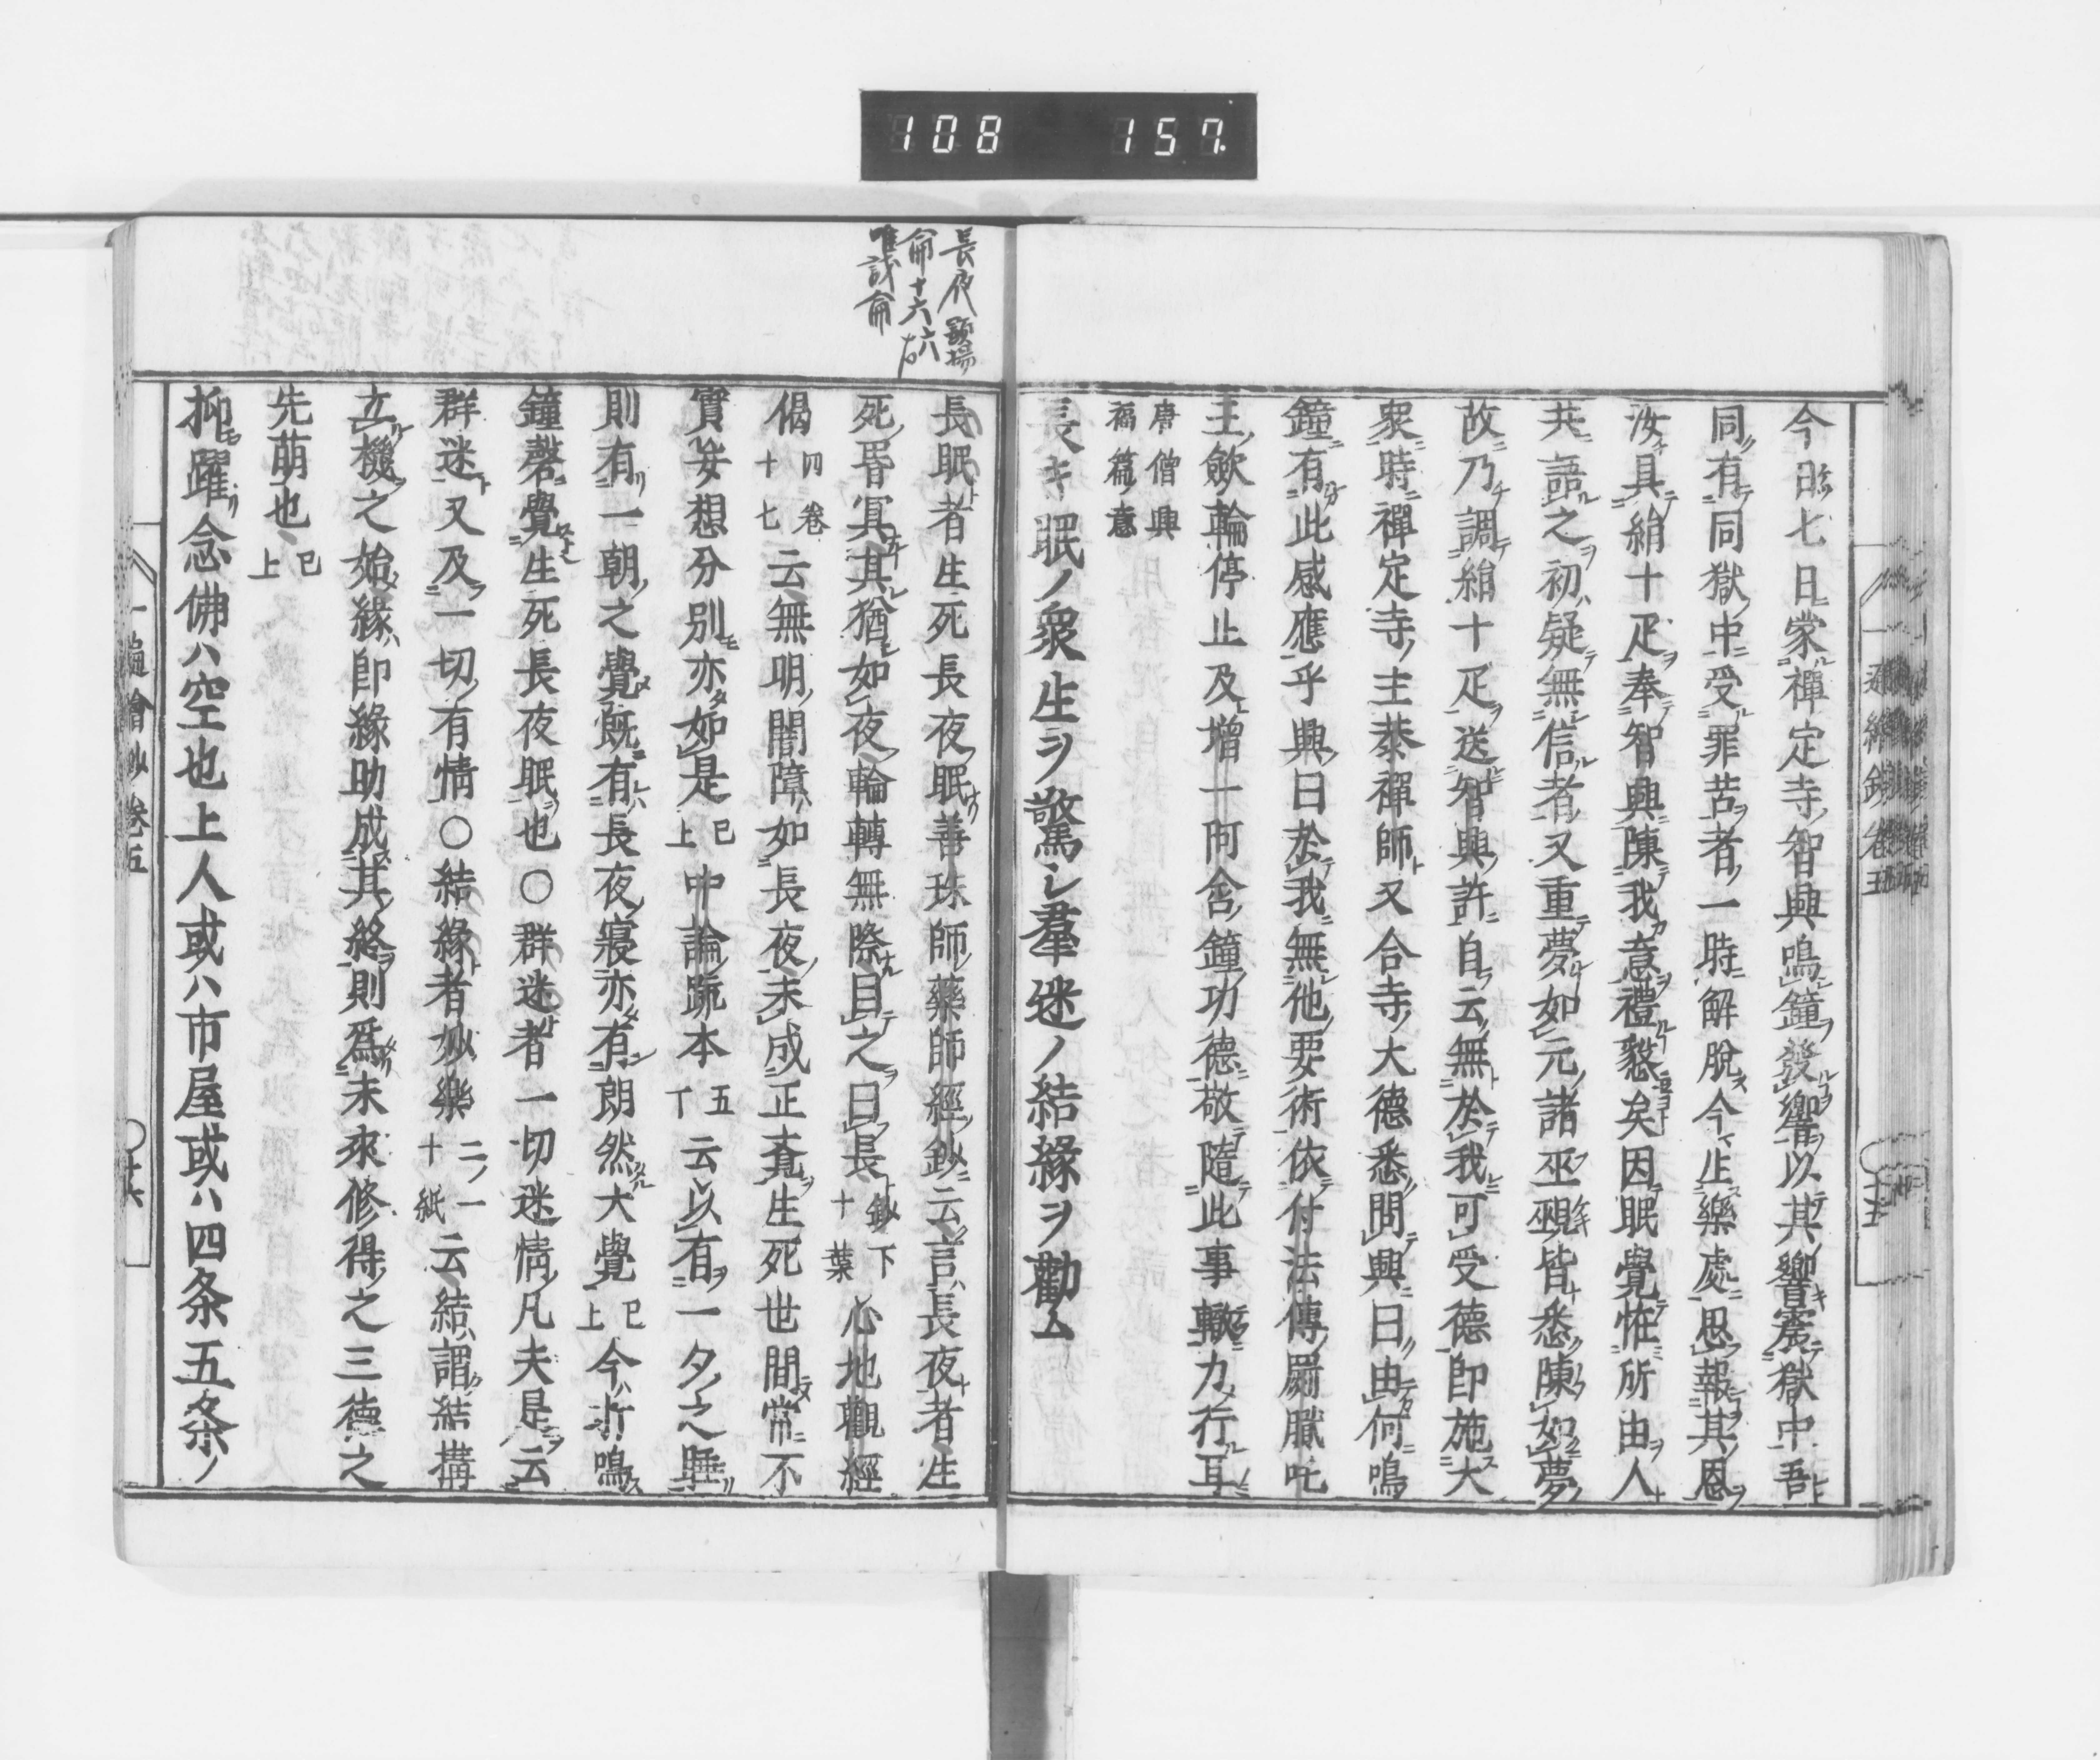 108 157
今日七日蒙禪定寺智興鳴鐘發響以其響震獄中吾
同有同獄中受罪苦者一時解脫今止樂處思報其恩
汝具絹十疋奉智興陳我意禮懇矣因眠覺怪所由人
共語之初疑無信者又重夢如元諸巫覡皆悉陳如夢
故乃調絹十疋送智興許自云無於我可受德即施大
衆時禪定寺主恭禪師又合寺大德悉問興曰由何鳴
鐘有此感應乎興曰於我無他要術依付法傳罽膩吒
王斂輪停止及增一阿含鐘功德敬隨此事輙力行耳
唐僧興
福篇意
長キ眠ノ衆生ヲ驚シ羣迷ノ結緣ヲ勸ム
長夜顯揚
侖十六六右
唯識侖
長眠者生死長夜眠善珠師藥師經鈔云言長夜者生
死昏冥其猶如夜輪轉無際目之曰長鈔下十葉心地觀經
偈四卷十七云無明闇障如長夜未成正覺生死世間常不
實妄想分別亦如是已上中論䟽本五丁云以有一夕之睡
則有一朝之覺既有長夜寢亦有朗然大覺已上今折鳴
鐘磬覺生死長夜眠也〇群迷者一切迷情凡夫是云
群迷又及一切有情〇結緣者妙樂二ノ一十紙云結謂結構
立機之始緣即緣助成其終則爲未來修得之三德之
先萌也已上
抑躍念佛ハ空也上人或ハ市屋或ハ四条五条ノ
一遍繪鈔卷五
〇十六